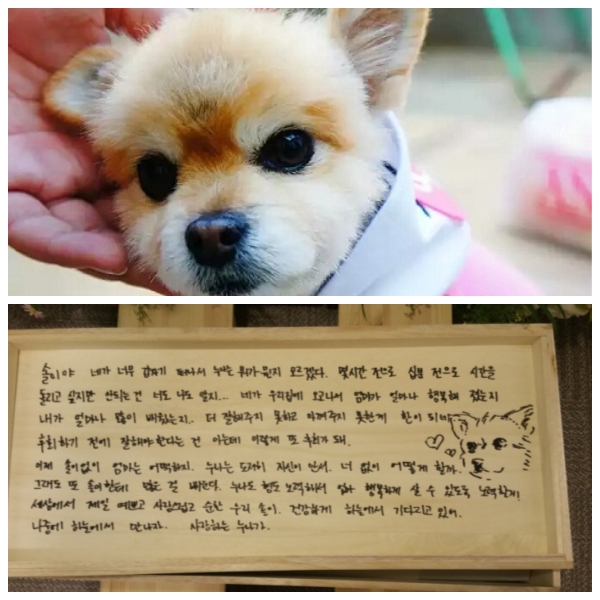 솔이야 네가 너무 갑자기 떠나서 누나는 뭐가 뭔지 모르겠다. 몇시간 전으로 십분 전으로 시간을
돌리고 싶지만 안되는건 너도 나도 알지... 네가 우리집에 오고나서 엄마가 얼마나 행복해 졌는지
내가 얼마나 많이 배웠는지.. 더 잘해주지 못하고 아껴주지 못한게 한이 되네
후회하기 전에 잘해야 한다는 건 아는데 이렇게 또 후회가 돼.
이제 솔이없이 엄마는 어떡하지. 누나는 도저히 자신이 안서. 너 없이 어떻게 할까.
그래도 또 솔이한테 배운 걸 누나도 노력해서 엄마 행복하게 살 수 있도록 노력할게!
세상에서 제일 예쁘고 사랑스럽고 순한 우리 솔이. 건강하게 하늘에서 기다리고 있어.
나중에 하늘에서 만나자. 사랑하는 누나가.